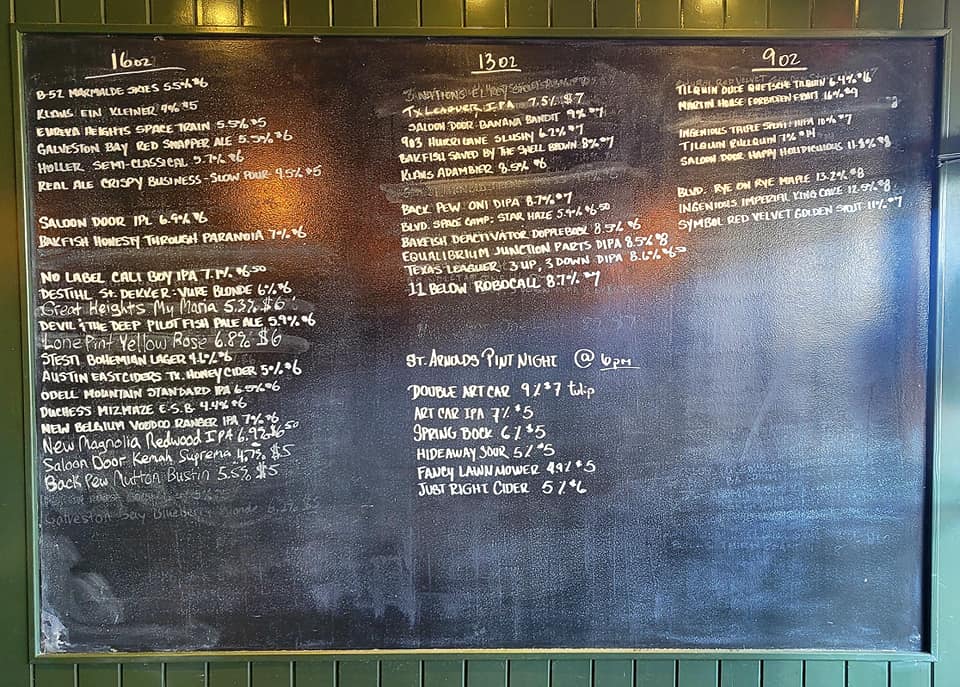 16oz
B-52 MARMALDE SKIES 5.5% $6
KLAUS EIN KLEINER 4% $5
EUREKA HEIGHTS SPACE TRAIN 5.5% $5
GALVESTON BAY RED SNAPPER ALE 5.5% $6
HOLLER SEMI-CLASSICAL 5.7% $6
REAL ALE CRISPY BUSINESS - SLOW POUR 4.5% $5
SALOON DOOR IPL 6.9% $6
BAKFISH HONESTY THROUGH PARANOIA 7% $6
NO LABEL CALI BOY IPA 7.1% $6.50
DESTIHL ST. DEKKER - VURE BLONDE 6% $6
Great Heights My Maria 5.3% $6
DEVIL & THE DEEP PILOT FISH PALE ALE 5.9% $6
Lone Pint Yellow Rose 6.8% $6
STESTI BOHEMIAN LAGER 4.6% $6
AUSTIN EASTCIDERS TX. HONEY CIDER 5% $6
ODELL MOUNTAIN STANDARD IPA 6.5% $6
DUCHESS MIZMAZE E.S.B. 4.4% $6
NEW BELGIUM VOODOO RANGER IPA 7% $6
New Magnolia Redwood IPA 6.9% $6.50
Saloon Door Kemah Suprema 4.7% $5
Back Pew Mutton Bustin 5.5% $5
Galveston Bay Blueberry Blonde
13oz
TX LEAGUER, I.PA 7.5% $7
SALOON DOOR BANANA BANDIT 9% $7
903 HURRICANE SLUSHY 6.2% $7
BAKFISH SAVED BY THE SHELL BROWN 8% $7
KLAUS ADAMBIER 8.5% $6
BACK PEW ONI DIPA 8.7% $7
BLVD. SPACE CAMP: STAR HAZE 5.9% $6.50
BAKFISH DEACTIVATOR DOPPLEBOCK 8.5% $6
EQUALIBRIUM JUNCTION PARTS DIPA 8.5% $8
TEXAS LEAGUER 3 UP, 3 DOWN DIPA 8.6% $6.50
11 BELOW ROBOCALL 8.7% $7
ST. ARNOLDS PINT NIGHT @ 6pm
DOUBLE ART CAR 9% $7 tulip
ART CAR IPA 7% $5
SPRING BOCK 6% $5
HIDEAWAY SOUR 5% $5
FANCY LAWNMOWER 4.9% $5
JUST RIGHT CIDER 5% $6
9oz
TILQUIN OUDE QUETSCHE TILQUIN 6.4% $16
MARTIN HOUSE FORBIDDEN FRUIT 16% $9
INGENIOUS TRIPLE SPLIT! HIPA 10% $7
TILQUIN RULLQUIN 7% $14
SALOON DOOR HAPPY HOLIDICULOUS 11.8% $8
BLVD. RYE ON RYE MAPLE 13.2% $8
INGENIOUS IMPERIAL KING CAKE 12.5% $8
SYMBOL RED VELVET GOLDEN STOUT 11% $7